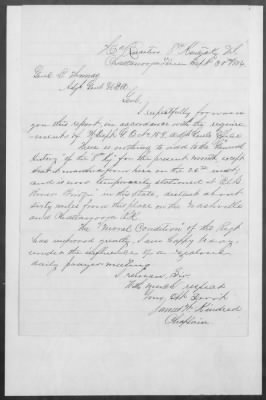 Hd Quarters 8th Kentucky Vol
Chattanooga Tenn Sept 30th 1864
Genl L. Thomas
Adjt Genl U.S.A.
Genl,
I respectfully forward
you this report, in accordance with the require
ments of
There is nothing to add to the "General
history" of the 8th Ky for the present month except
that it marched from here on the 26th inst,
and is now temporarily stationed at Elk
River Bridge in this state, distant about
sixty miles from this place on the Nashville
and Chattanooga RR.
The "Moral Condition" of the Regt
has improved greatly, I am happy to say,
under the influences of a
daily prayer meeting
I remain, Sir
With much respect
Your Obt Servt
James W. Kindred
Chaplain